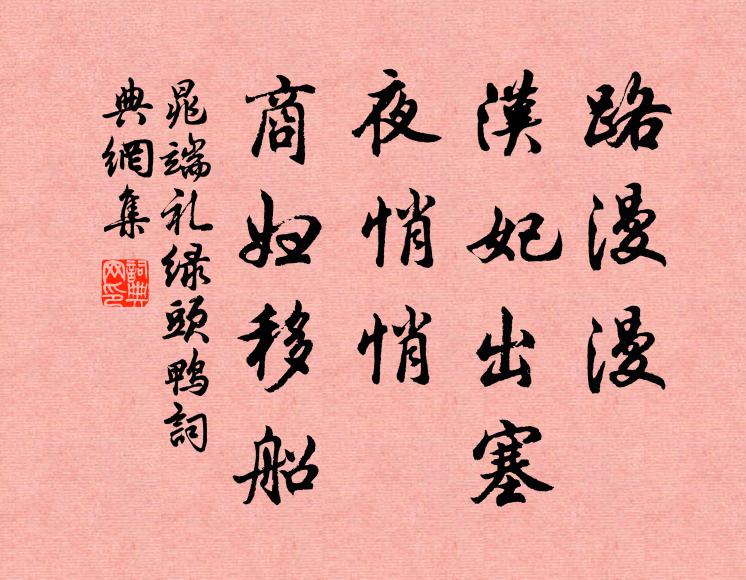 路漫漫
漢妃出塞
夜悄悄
商妇移船
晁端礼绿頭鴨詞
典網集
詞典
网印